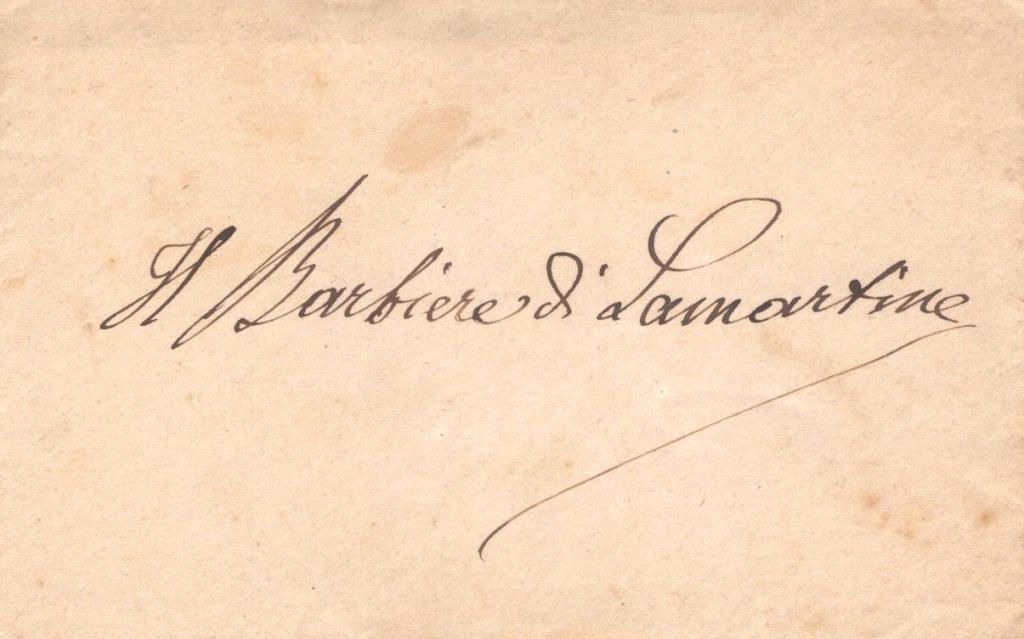 Il Barbiere di Lamartine